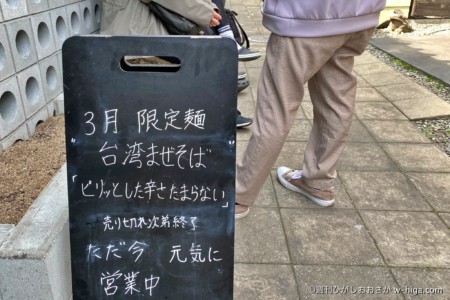 3月 限定麺
台湾まぜそば
「ピリッとした辛さたまらない」
売り切れ次第終了
ただ今 元気に
営業中
©週刊ひがしおおさか w-higa.com